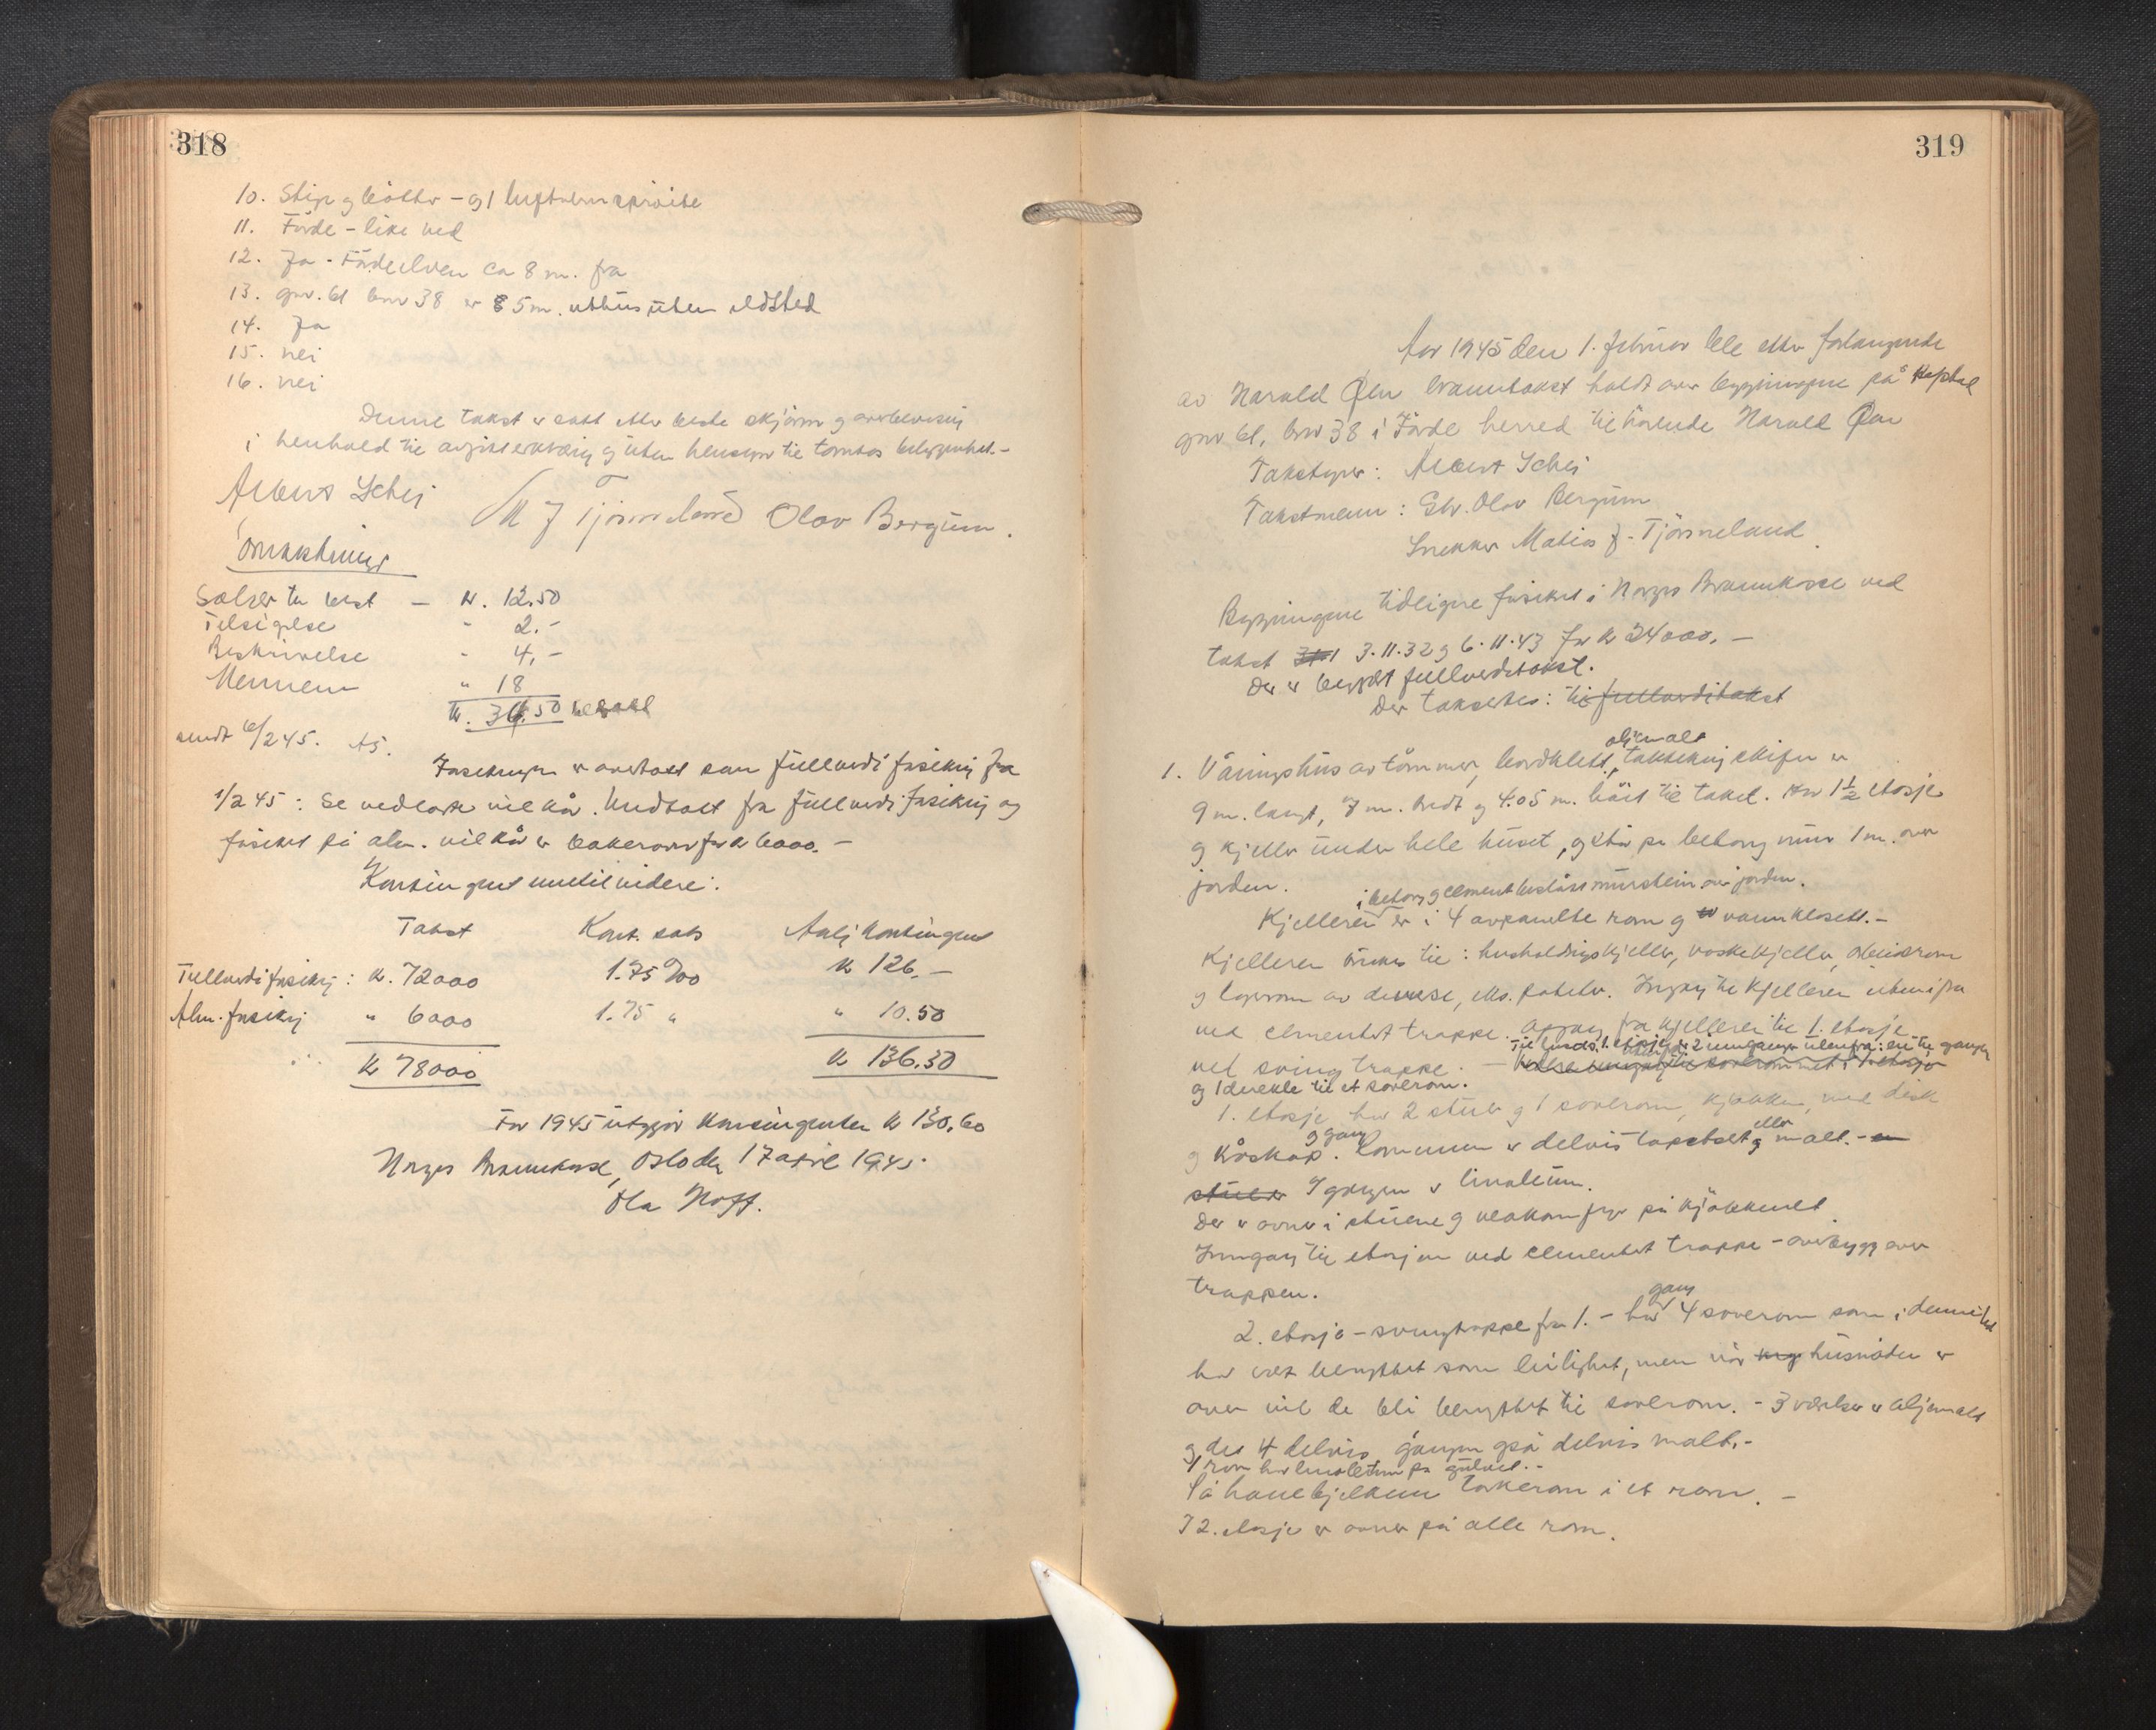 318
10. Stige og bøtter - og 1 luftvernsprøite
11. Förde - like ved
12. Ja - Fördeelven ca 8 m. fra
13. gnr. 61 bnr 38 er 85 m. uthus uten ildsted
14. Ja
15. nei
16. nei
Denne takst er satt etter beste skjönn og overbevisning
i henhold til avgitt erklæring og uten hensyn til tomtas beliggenhet. -
Albert Schei M J Tjönneland Olav Bergum.
Omkostninger
Sættes tu best - kr. 12.50
Tilsigelse - 2.-
Beskrivelse - 4,-
Mennene " 18
kr. 36.50 betalt
sendt 6/2 45. AS.
Forsikringen er overtatt som fullverdiforsikring fra
1/2 45: Se vedlagte vilkår. Undtatt fra fullverdiforsikring og
forsikret på alm. vilkår er bakerovn for kr 6000. -
Kontingent inntil videre:
Takst Kont. sats Årlig kontingent
Fullverdiforsikring: kr. 72000 1.75 ‰ kr 126.-
Alm. forsikring " 6000 1.75 " " 10.50
kr 78000 kr 136.50
For 1945 utgjør kontingenten kr 130.60
Norges Brannkasse, Oslo den 17 april 1945.
Ola Hoff.
319
Aar 1945 den 1. februar ble etter forlangende
av Harald Øen branntakst holdt over bygningene på Hapstad
gnr 61, bnr 38 i Förde herred tilhörende Harald Øen
Takstgiver: Albert Schei
Takstmenn: Gbr. Olav Bergum
Snekker Matias J. Tjönneland.
Bygningene tidligere forsikret i Norges Brannkasse ved
takst 3.11.32 og 6.11.43 for kr 34000. -
Der er begjært fullverditakst.
Der takseres: til fullverditakst
oljemalt
1. Våningshus av tömmer, bordkledt, taktekking skifer er
9 m. langt, 7 m. bredt og 4.05 m. höit til taket. Har 1½ etasje
og kjeller under hele huset, og står på betong mur 1 m. over
jorden.
i betong og cementpusset mursten over jorden.
Kjelleren er i 4 avpanelte rom og vannklosett. -
Kjelleren brukes til: husholdningskjeller, vaskekjeller, arbeidsrom
og lagerrom av diverse, eks. poteter. Ingang til kjelleren utenifra
ved cementert trappe. Oppgang fra kjelleren til 1. etasje
Til husets 1. etasje er 2 innganger utenfra: en til gangen
ved svingtrappe. -
og 1 direkte til et soverom.
1. etasje har 2 stuer og 1 soverom, kjøkken, med disk
og gang eller
og kåskap. Rommene er delvis tapetsert og malt. -
stuer I gangen er linoleum.
Der er ovner i stuene og vedkomfyr på kjökkenet.
Inngang til etasjen ved cementert trappe - overbygg over
trappen.
gang
2. etasje - svingtrappe fra 1. - har 4 soverom som i denne tid
har vært benyttet som leilighet, men når krig husnöden er
over vil de bli benyttet til soverom. - 3 værelser er oljemalt
og det 4 delvis, gangen også delvis malt. -
1 rom har linoleum på gulvet. -
På hanebjelken törkerom i et rom. -
I 2. etasje er ovner på alle rom.